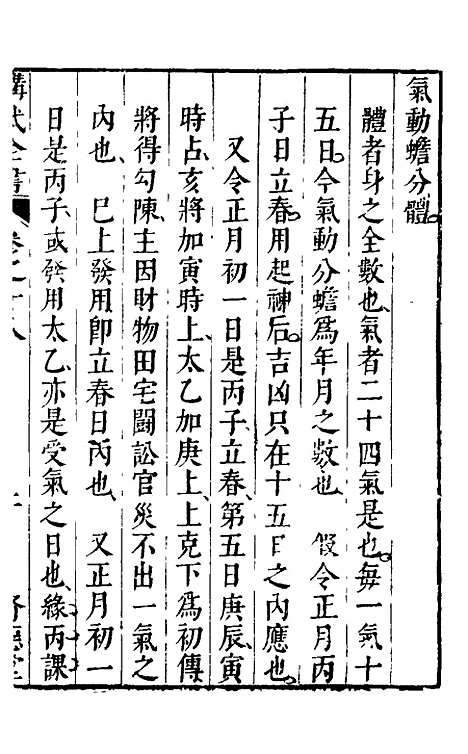 氣動蟾分體
體者身之全數也氣者二十四氣是也每一氣十
五日今氣動分蟾爲年月之數也　假令正月丙
子日立春用起神后吉凶只在十五日之內應也
又令正月初一日是丙子立春第五日庚辰寅
時占亥將加寅時上太乙加庚上上克下爲初傳
將得勾陳主因財物田宅鬪訟官災不出一氣之
內也　巳上發用卽立春日丙也　又正月初一
日是丙子或發用太乙亦是受氣之日也緣丙課
講武全書
卷之十八